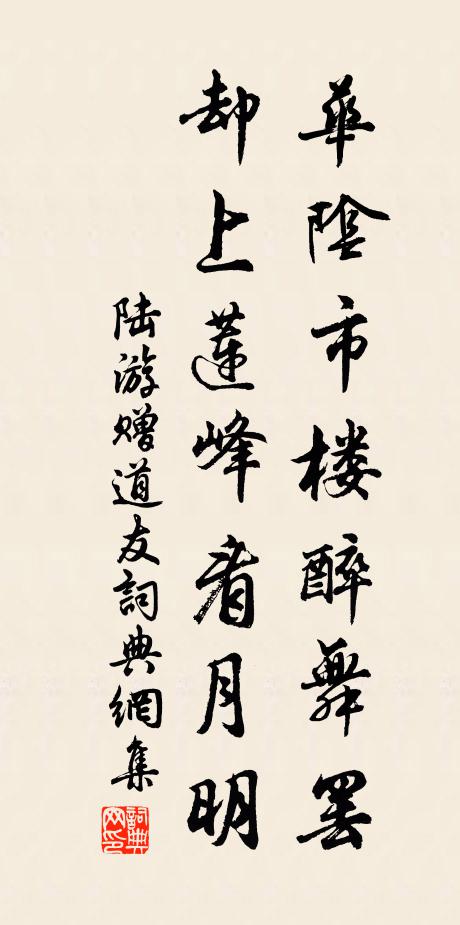 華陰市楼醉舞罢
却上蓮峰看月明
陆游赠道友詞典網集
詞典網印